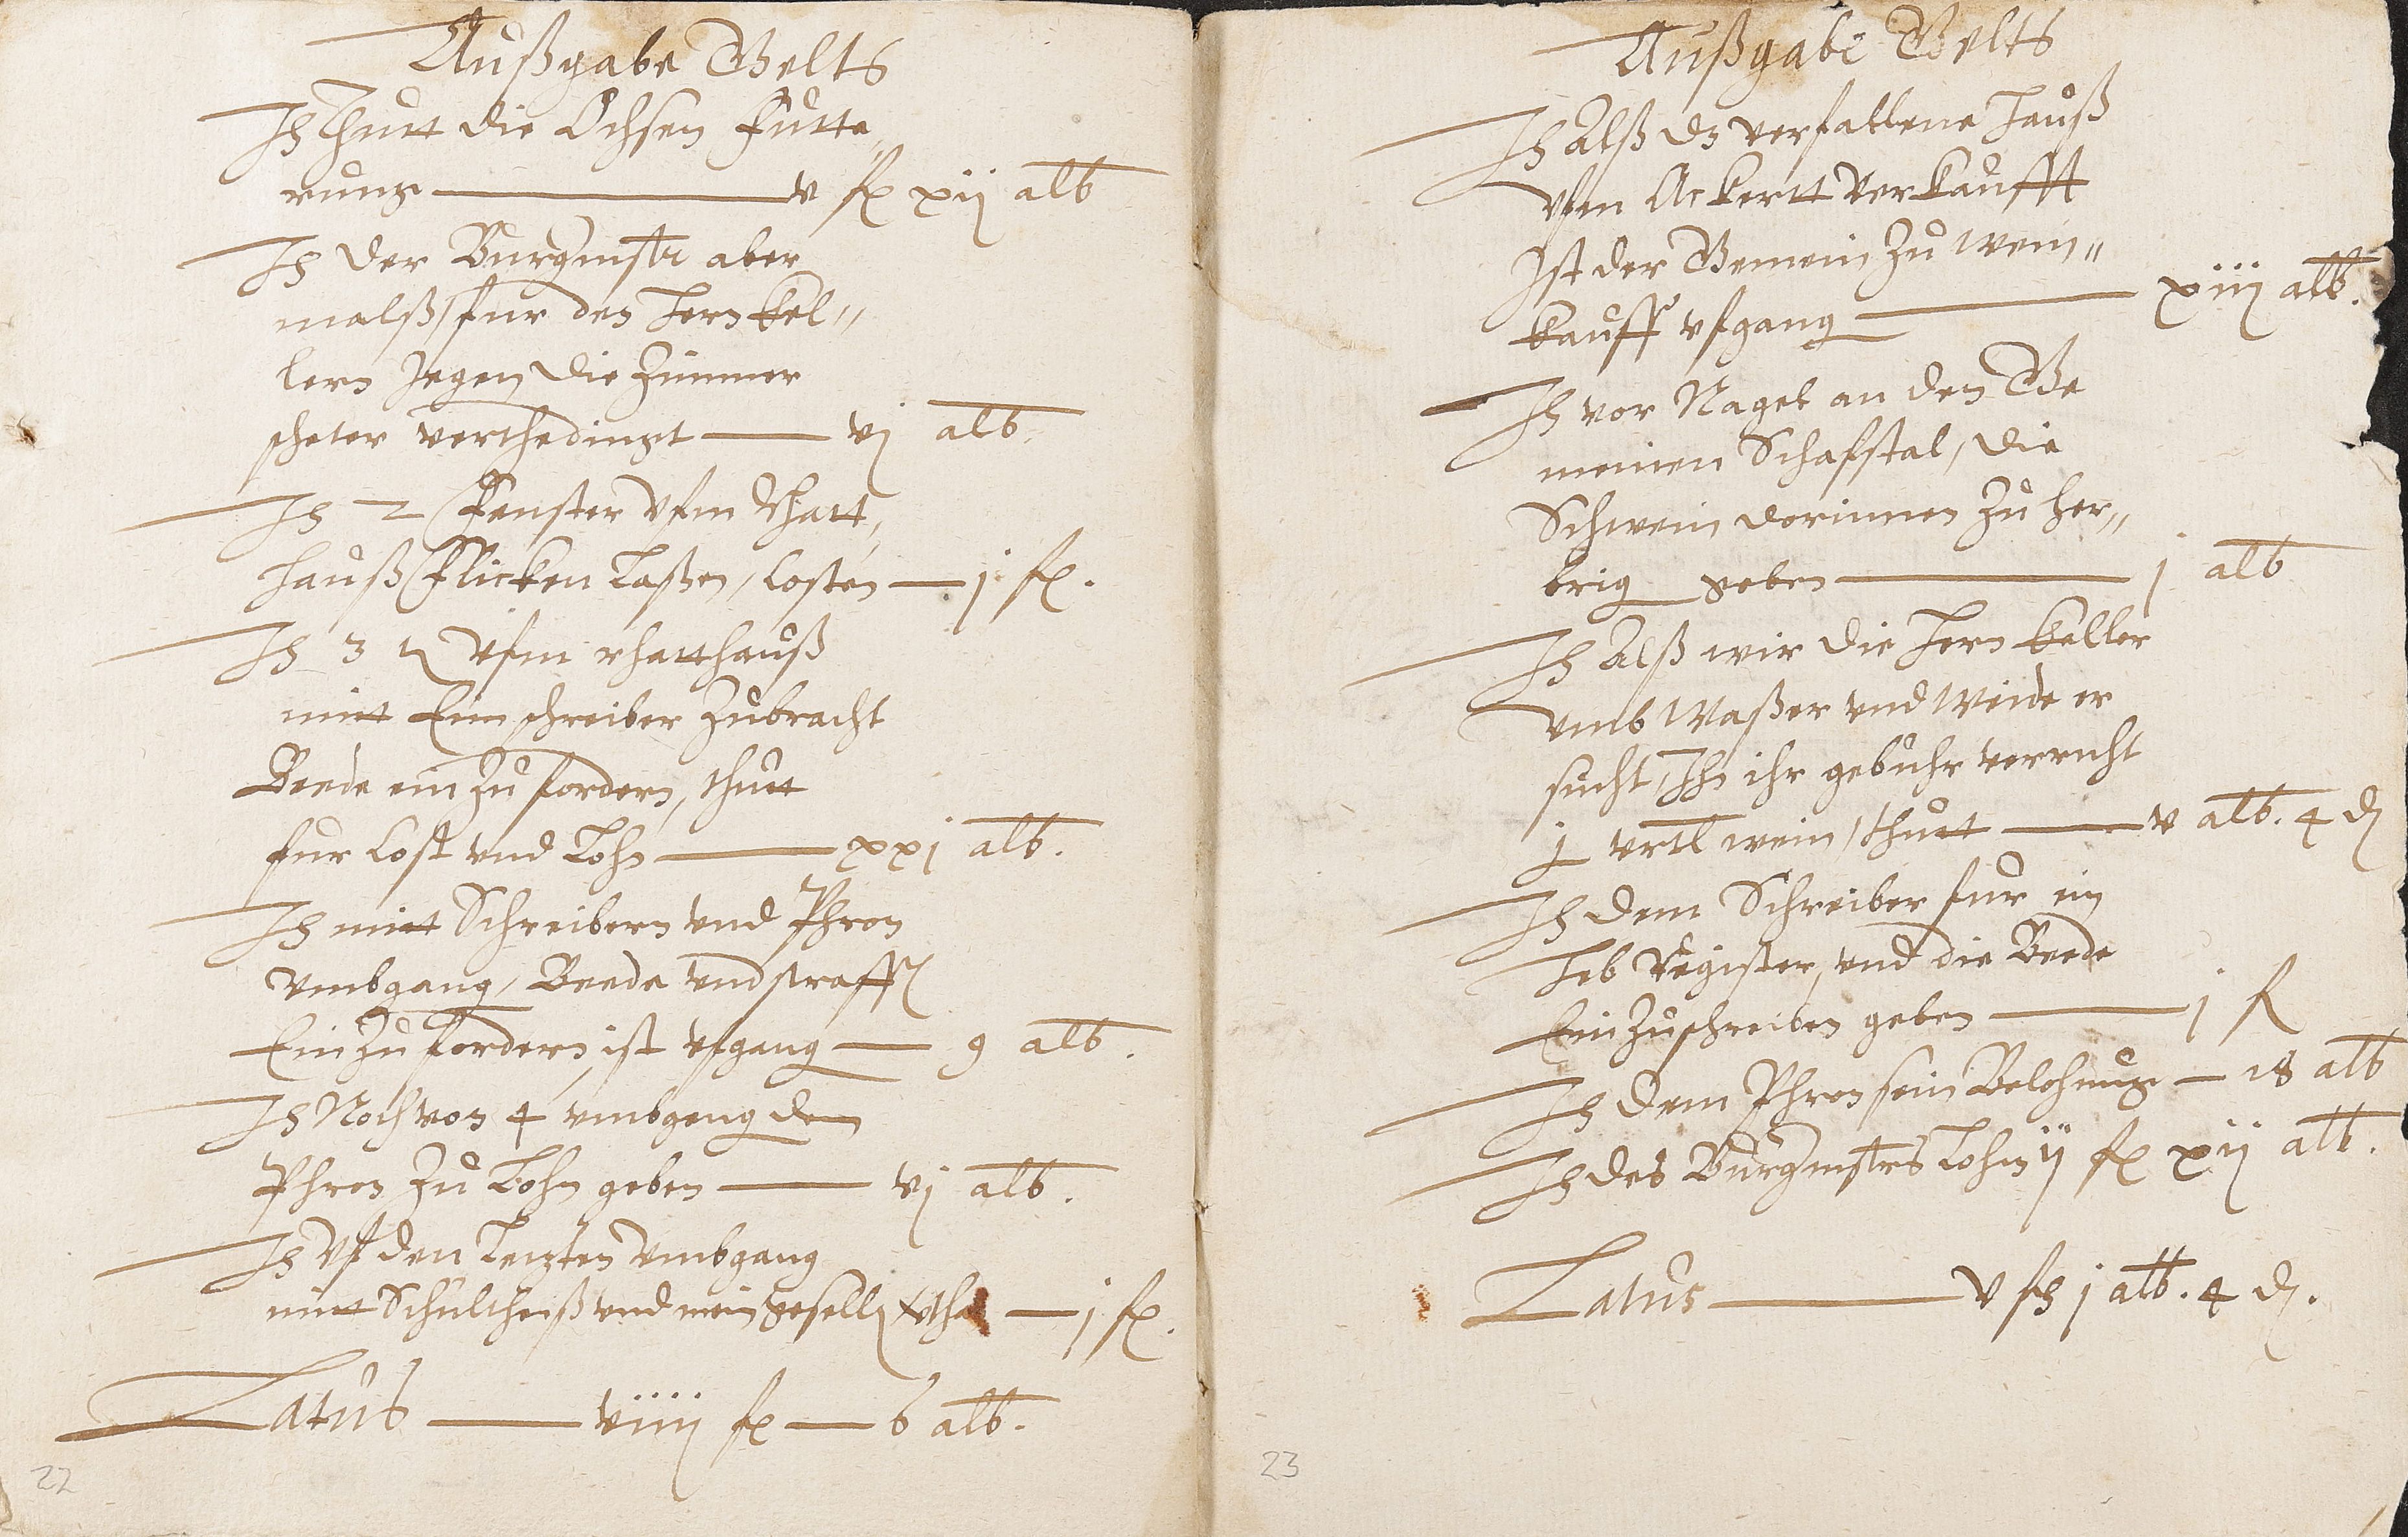 Außgabe Gelts
It Thutt die Ochsen Futte„
rung v fl xij alb
It der Burgmstr aber
malß, fur den Hern Kel„
lern gegen die Zimmer
scheter verthedingt vj alb.
It 2 Fenster Vfm Rhatt„
hauß Flicken Laßen, Costen j fl.
It 3 Vfm rhatthauß
mitt Eim schreiber Zubracht
Beede ein Zu fordern, thutt
fur Cost vnd Lohn xxj alb.
It mitt Schreibern vnd Phron
vmbgang, Beede vnd straff
Ein Zu fordern, ist vfgang 9 alb.
It Noch von 4 vmbgeng dem
Phron Zu Lohn geben vj alb.
It Vf den Letzten vmbgang
mitt Schultheiß vnd mein geselln j fl.
Latus viiij fl 6 alb.
22
Außgabe Gelts
It Alß dz verfallene Hauß
Vfm Ackertt Verkaufft
Ist der Gemein Zu wein„
kauff vfgang xiiij alb.
It vor Nagel an den Ge
meinen Schafstal, die
Schwein dorinnen Zu her„
brig geben j alb
It Alß wir die Hern Keller
vmb Waßer vnd Weide er
sucht, Ihn ihr gebuhr verricht
j vrtl wein, thutt v alb. 4 d
It dem Schreiber fur ein
Heb Register, vnd die Beede
Ein Zuschreiben geben j fl
It dem Phron sein Belohnung 18 alb
It des Burgmstrs Lohn ij fl xij alb.
Latus v fl j alb. 4 d.
23